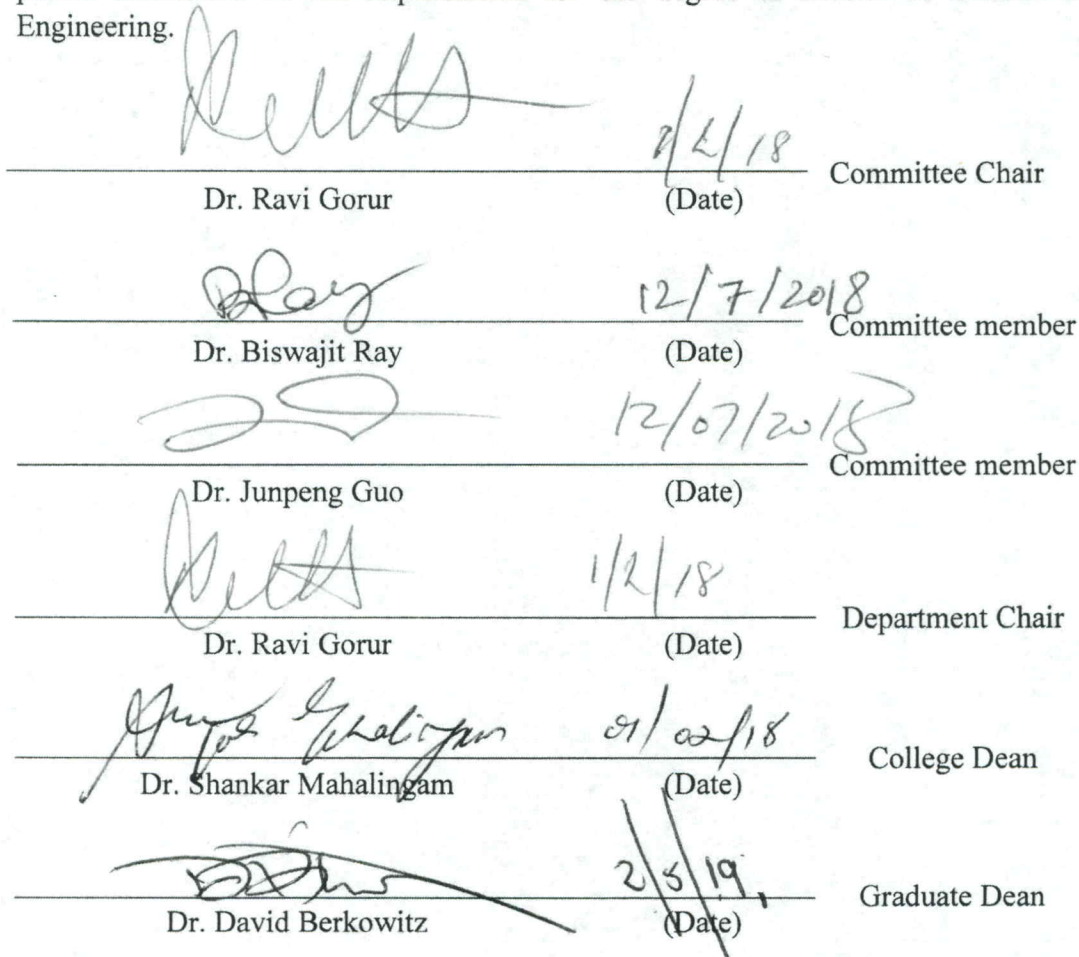 Engineering.
1/2/18 Committee Chair
Dr. Ravi Gorur (Date)
12/7/2018 Committee member
Dr. Biswajit Ray (Date)
12/07/2018 Committee member
Dr. Junpeng Guo (Date)
1/2/18 Department Chair
Dr. Ravi Gorur (Date)
01/02/18 College Dean
Dr. Shankar Mahalingam (Date)
2/5/19 Graduate Dean
Dr. David Berkowitz (Date)